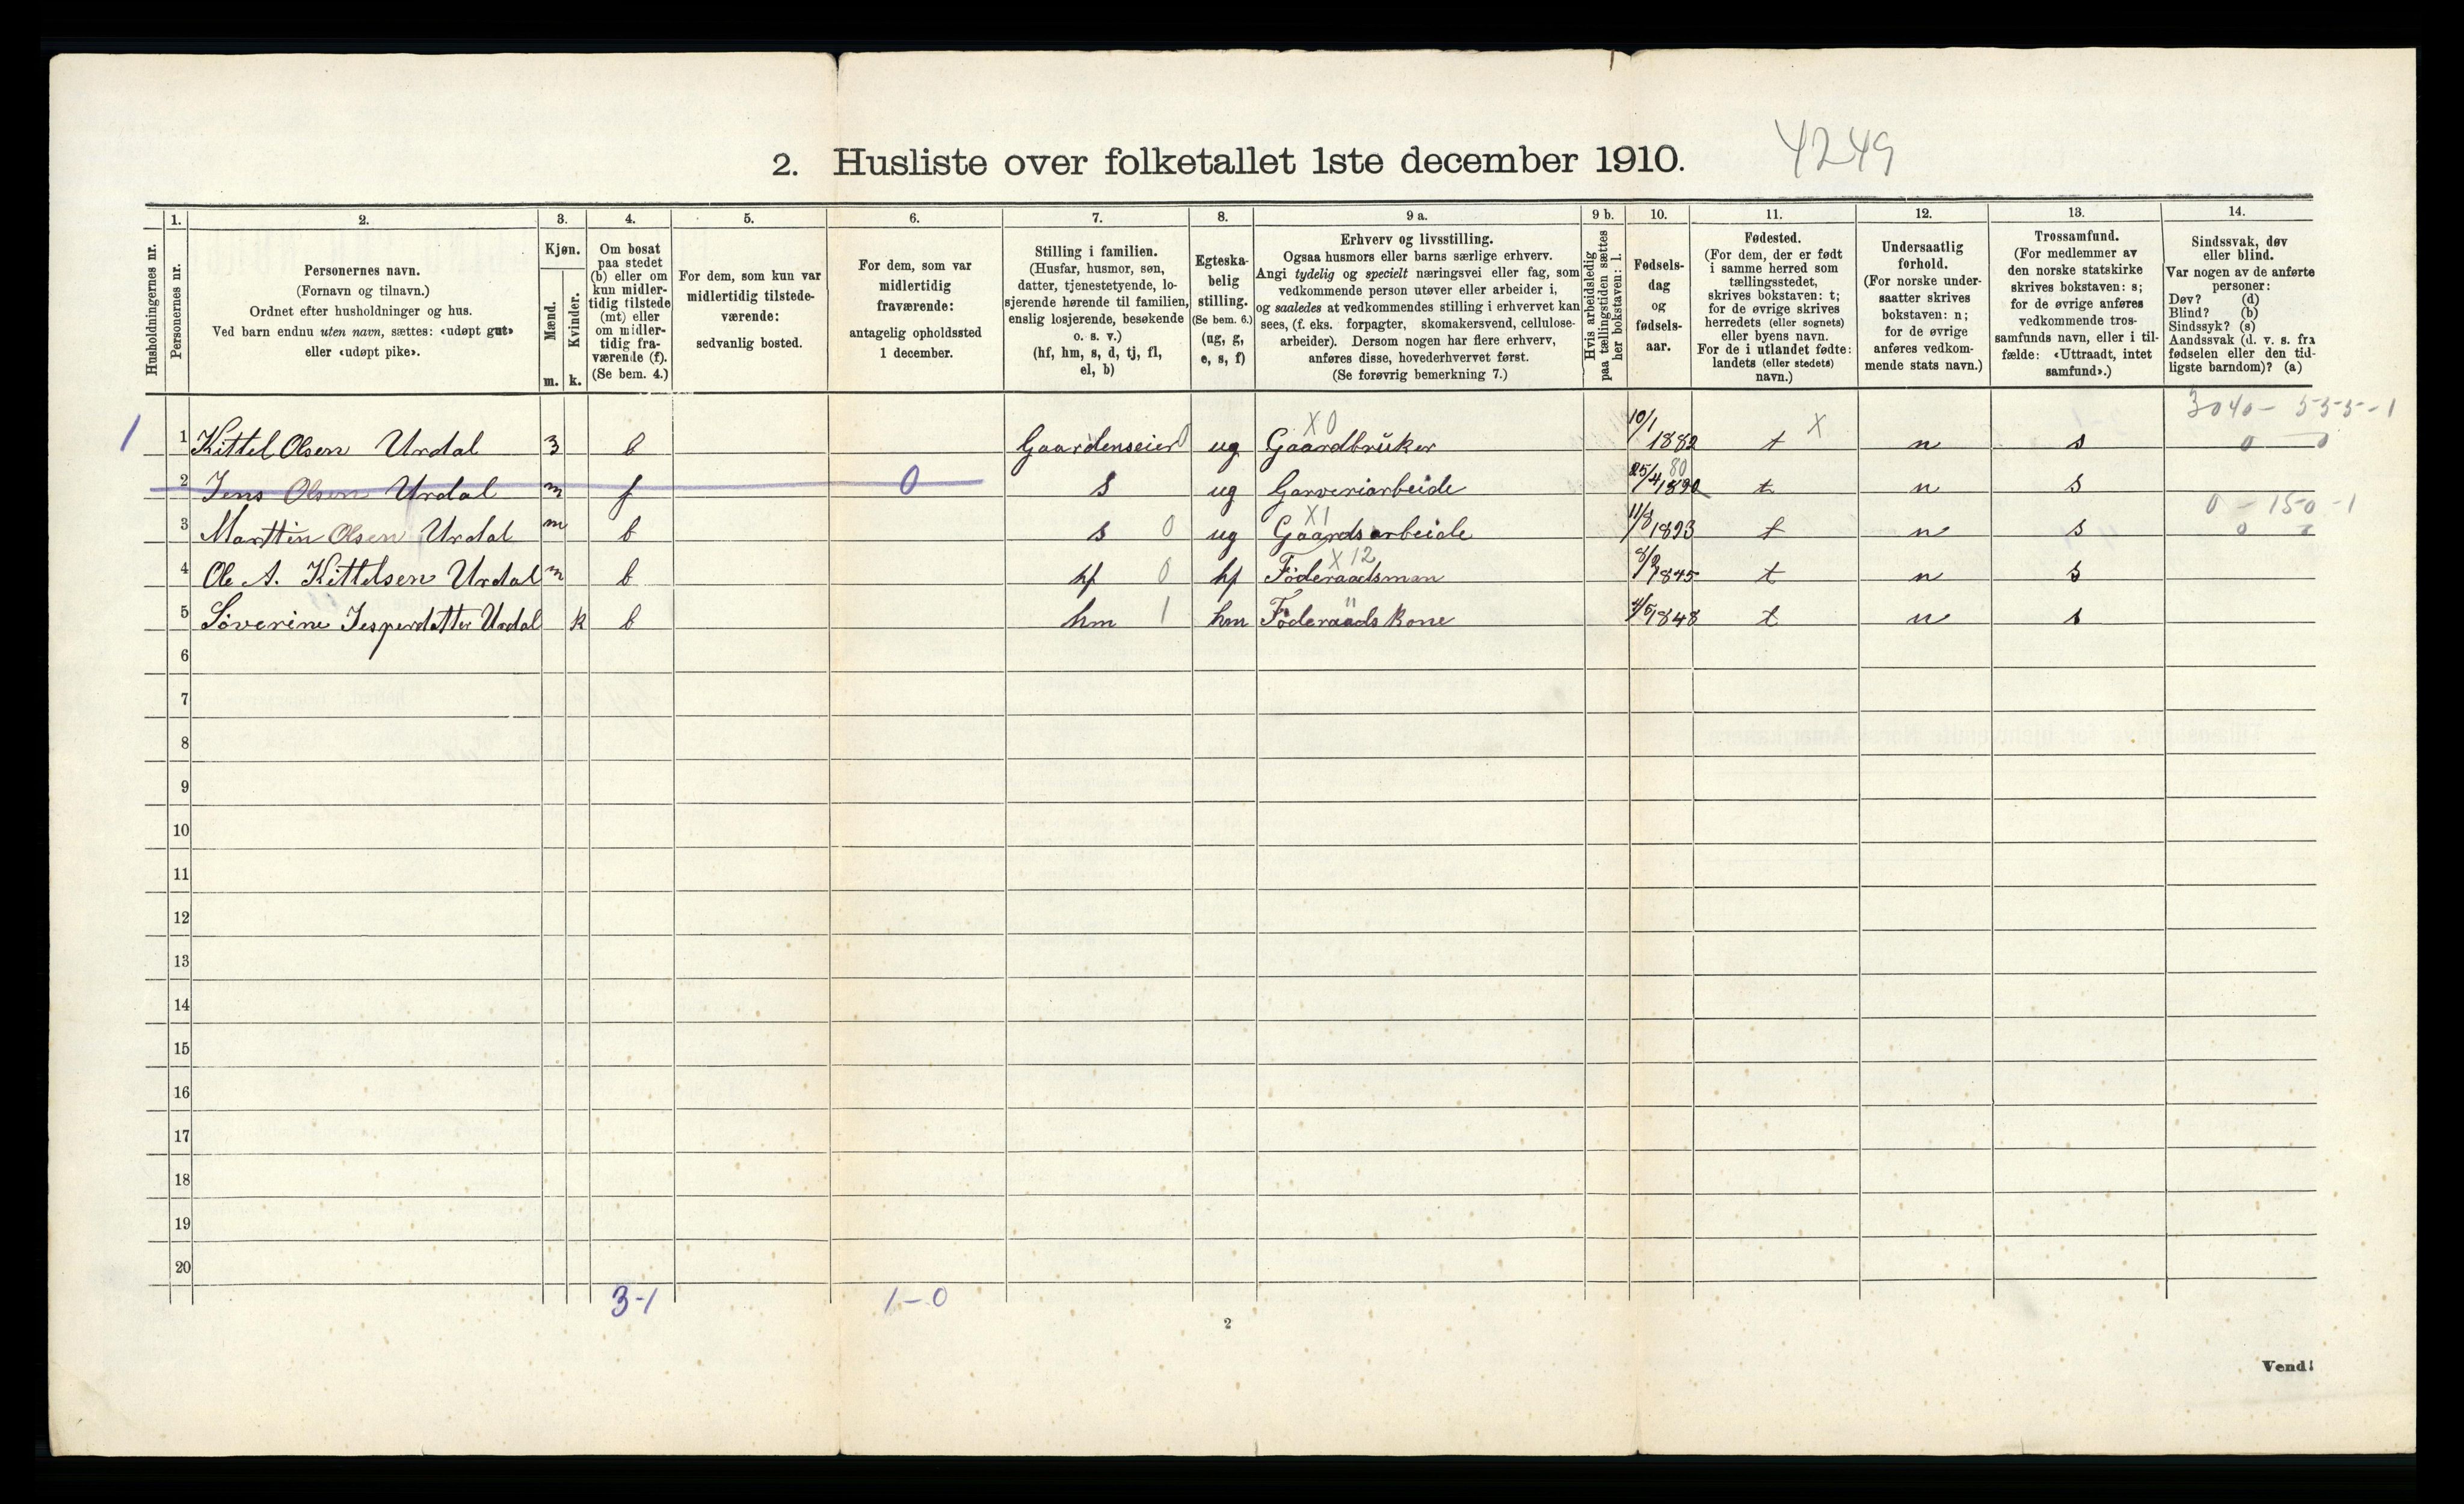 4249
2. Husliste over folketallet 1ste december 1910.
1. 2. 3. 4. 5. 6. 7. 8. 9 a. 9 b. 10. 11. 12. 13. 14.
Husholdningernes nr.
Personernes nr.
Personernes navn.
(Fornavn og tilnavn.)
Ordnet efter husholdninger og hus.
Ved barn endnu uten navn, sættes: «udøpt gut»
eller «udøpt pike».
Kjøn.
Mænd.
Kvinder.
m. k.
Om bosat
paa stedet
(b) eller om
kun midler-
tidig tilstede
(mt) eller
om midler-
tidig fra-
værende (f).
(Se bem. 4.)
For dem, som kun var
midlertidig tilstede-
værende:
sedvanlig bosted.
For dem, som var
midlertidig
fraværende:
antagelig opholdssted
1 december.
Stilling i familien.
(Husfar, husmor, søn,
datter, tjenestetyende, lo-
sjerende hørende til familien,
enslig losjerende, besøkende
o. s. v.)
(hf, hm, s, d, tj, fl,
el, b)
Egteska-
belig
stilling.
(Se bem. 6.)
(ug, g,
e, s, f)
Erhverv og livsstilling.
Ogsaa husmors eller barns særlige erhverv.
Angi tydelig og specielt næringsvei eller fag, som
vedkommende person utøver eller arbeider i,
og saaledes at vedkommendes stilling i erhvervet kan
sees, (f. eks. forpagter, skomakersvend, cellulose-
arbeider). Dersom nogen har flere erhverv,
anføres disse, hovederhvervet først.
(Se forøvrig bemerkning 7.)
Hvis arbeidsledig
paa tællingstiden sættes
her bokstaven: l.
Fødsels-
dag
og
fødsels-
aar.
Fødested.
(For dem, der er født
i samme herred som
tællingsstedet,
skrives bokstaven: t;
for de øvrige skrives
herredets (eller sognets)
eller byens navn.
For de i utlandet fødte:
landets (eller stedets)
navn.)
Undersaatlig
forhold.
(For norske under-
saatter skrives
bokstaven: n;
for de øvrige
anføres vedkom-
mende stats navn.)
Trossamfund.
(For medlemmer av
den norske statskirke
skrives bokstaven: s;
for de øvrige anføres
vedkommende tros-
samfunds navn, eller i til-
fælde: «Uttraadt, intet
samfund».)
Sindssvak, døv
eller blind.
Var nogen av de anførte
personer:
Døv? (d)
Blind? (b)
Sindssyk? (s)
Aandssvak (d. v. s. fra
fødselen eller den tid-
ligste barndom)? (a)
3040 - 555 - 1
X 0
1 1 Kittel Olsen Urdal 3 b Gaardenseier 0 ug Gaardbrüker 10/1 1882 t X n s 0 0
2 Jens Olsen Urdal m f 0 s ug Garveriarbeide 25/4 1890 80 t n s
0 - 150 - 1
X1
3 Marttin Olsen Urdal m b s 0 ug Gaardsarbeide 11/8 1893 t n s 0
X 12
4 Ole A. Kittelsen Urdal m b hf 0 hf Föderaadsman 1845 t n s
5 Söverine Jesperdatter Urdal k b hm 1 hm Föderaadskone 4/5 1848 t n s
6
7
8
9
10
11
12
13
14
15
16
17
18
19
20
3-1 1-0
2
Vend!